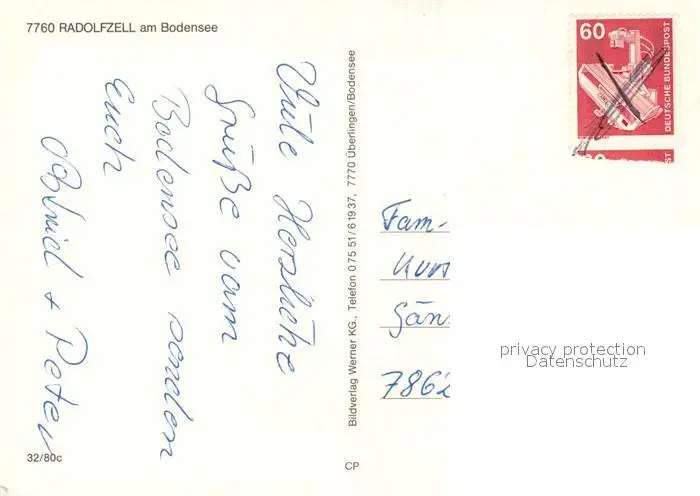 7760 RADOLFZELL am Bodensee
Viele Herzliche
Grüße vom
Bodensee senden
Euch
Astrid + Peter
32/80c
Bildverlag Werner KG., Telefon 0 75 51/6 19 37, 7770 Überlingen/Bodensee
CP
60
DEUTSCHE BUNDESPOST
60
ST
Fam-
Kurt
Gän
7862
privacy protection
Datenschutz